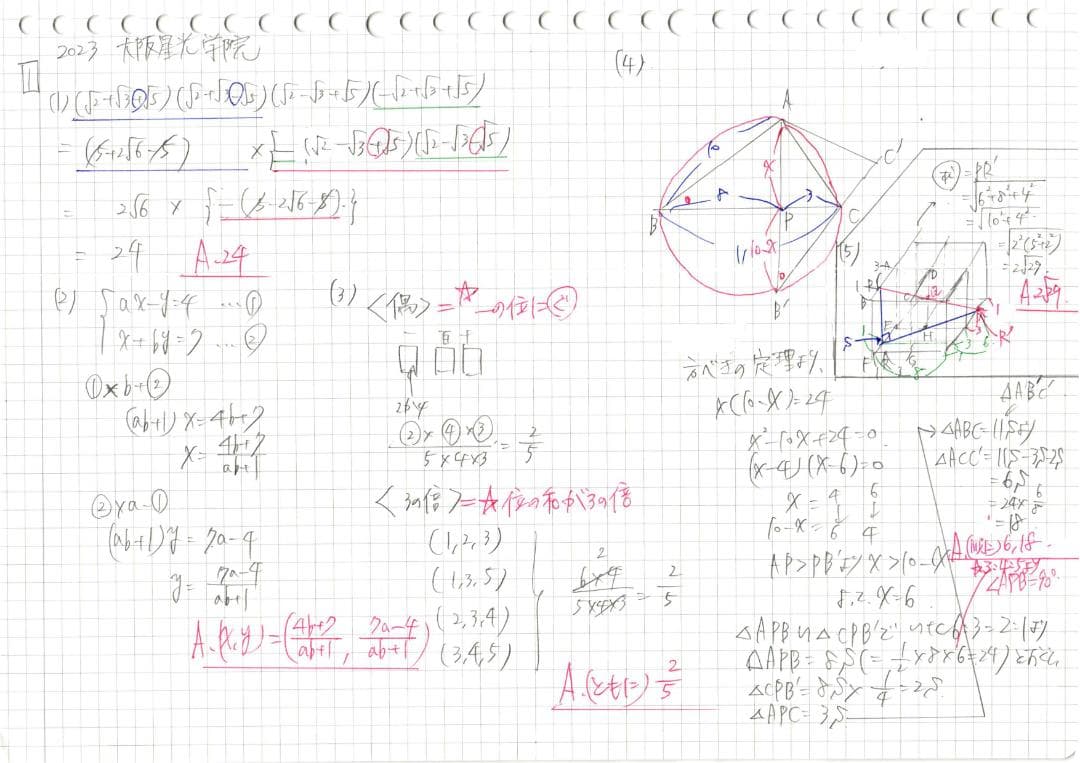 2023 大阪星光学院
1
(1) (√2+√3+√5)(√2+√3-√5)(√2-√3+√5)(-√2+√3+√5)
= (5+2√6-5) × {-(√2-√3+√5)(√2-√3-√5)}
= 2√6 × {-(5-2√6-5)}
= 24 A.24
(2) { ax-y=4 …①
x+by=7 …②
①×b+②
(ab+1)x=4b+7
x=4b+7/ab+1
②×a-①
(ab+1)y=7a-4
y=7a-4/ab+1
A.(x,y)=(4b+7/ab+1, 7a-4/ab+1)
(3) <偶>=☆一の位に
一 百 十
2or4
②×④×③/5×4×3=2/5
<3の倍>=☆位の和が3の倍
(1,2,3)
(1,3,5)
(2,3,4)
(3,4,5)
6×4/5×4×3=2/5
2
A.(ともに)2/5
(4)
A
10
x
C'
8
3
B
P
C
11
10-x
B'
方べきの定理より,
x(10-x)=24
x²-10x+24=0
(x-4)(x-6)=0
x=4 6
10-x=6 4
AP>PB'より x>10-x
よってx=6
△APB∽△CPB'で 6:3=2:1より
△APB=8S(=1/2×8×6=24)とおくと
△CPB'=8S×1/4=2S
△APC=3S
△AB'C'
→△ABC=11Sより
△ACC'=11S-3S-2S
=6S
=24×6/8
=18
A.(順に)6,18
3:4:5より
∠APB=90°
(5)
=PR'
=√6²+8²+4²
=√10²+4²
=√2²(5²+2²)
=2√29
A.2√29
B
D
C
Q
S
E
H
F
G
R'
8